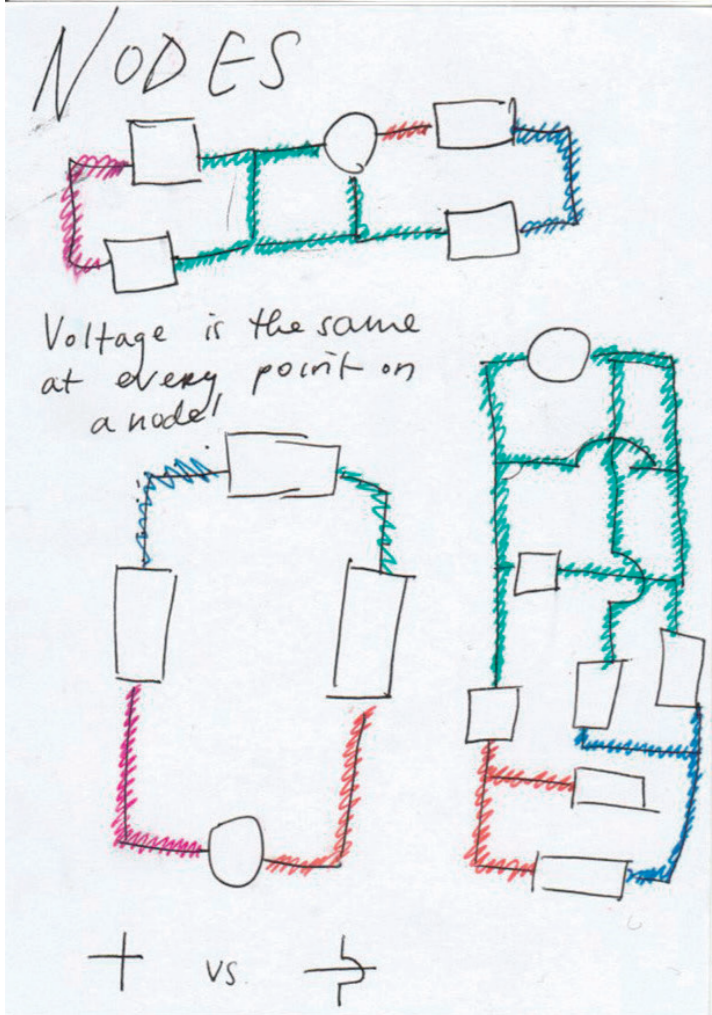 NODES
Voltage is the same
at every point on
a node!
vs.